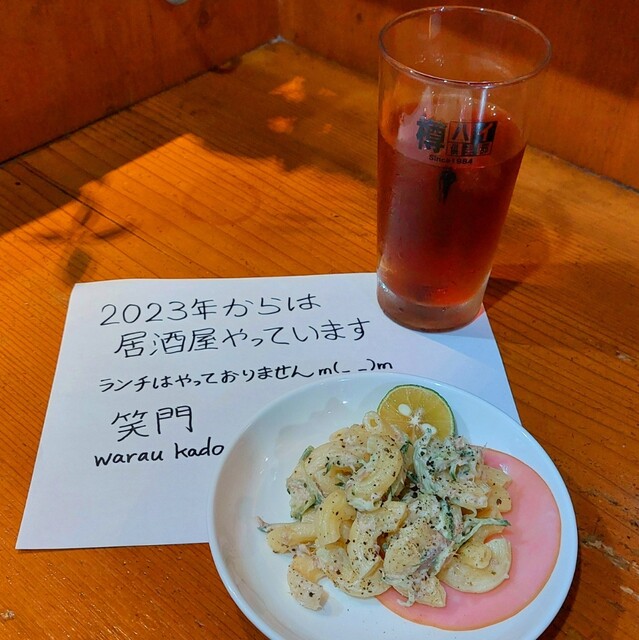 樽ハイ
倶楽部
Since1984
2023年からは
居酒屋やっています
ランチはやっておりませんm(_ _)m
笑門
warau kado